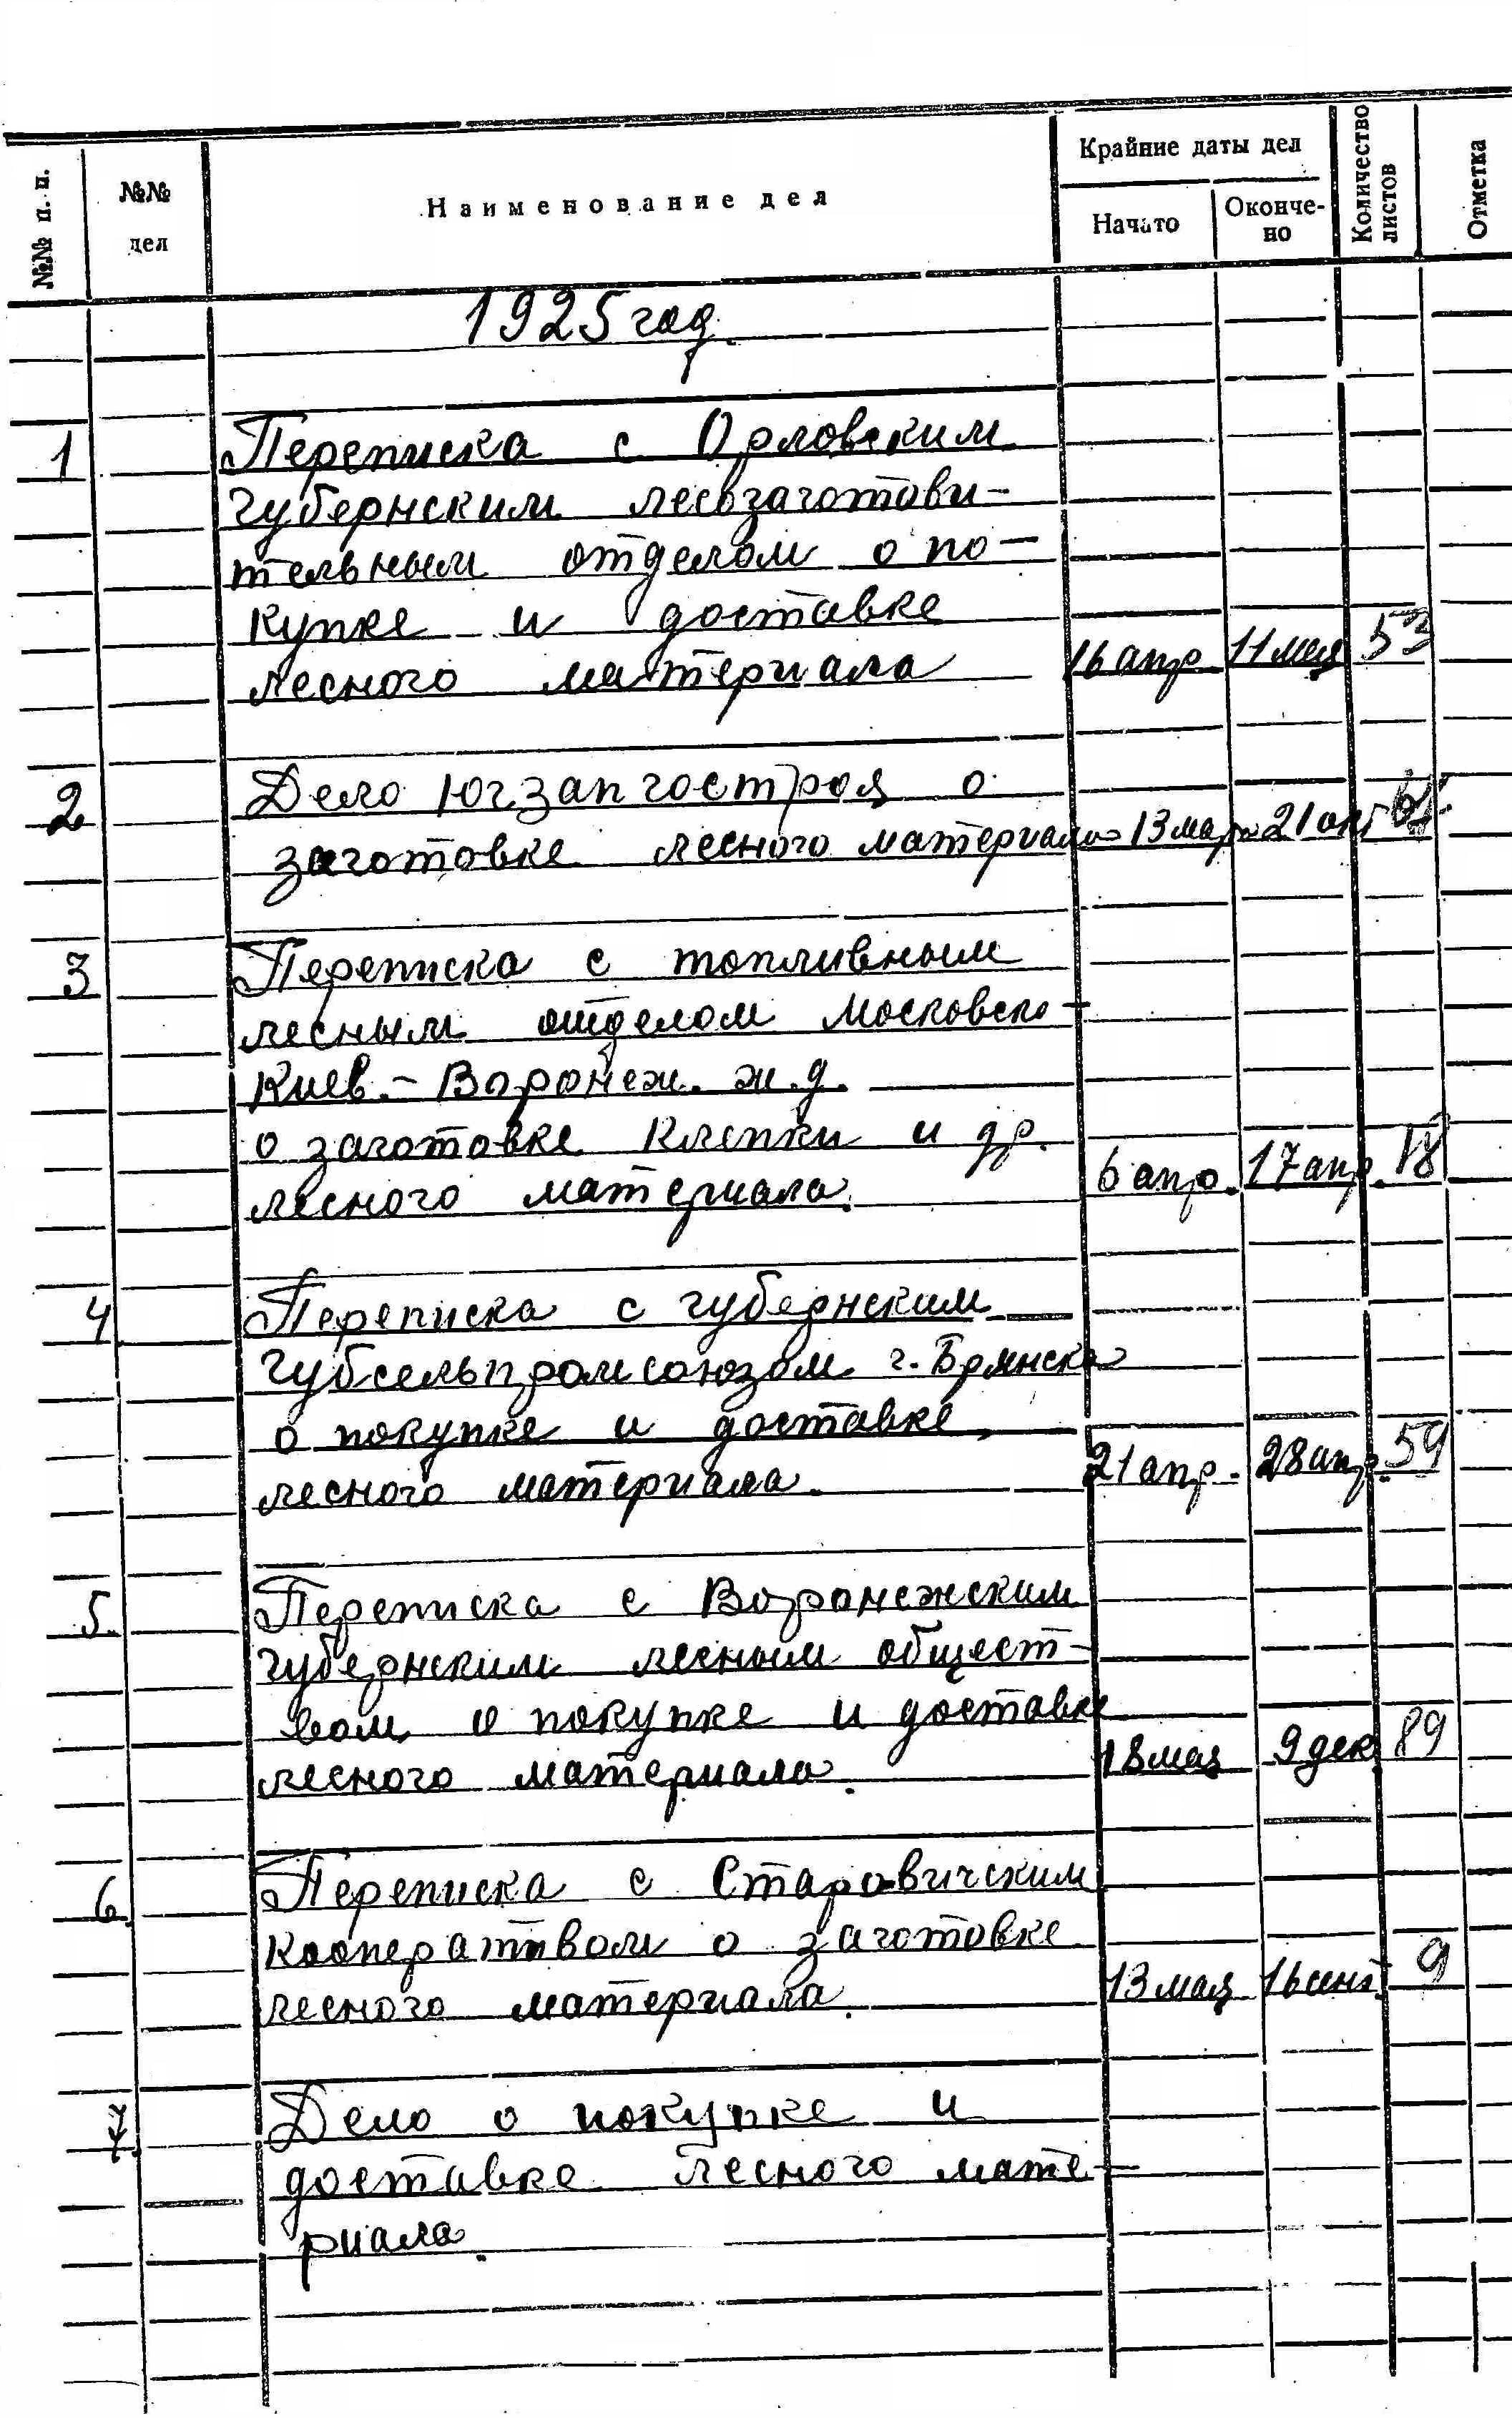 №№ п. п.
№№ дел
Наименование дел
Крайние даты дел
Начато
Окончено
Количество листов
Отметка
1925 год.
1 Переписка с Орловским
губернским лесозаготови-
тельным отделом о по-
купке и доставке
лесного материала 16 апр 11 мая 53
2 Дело Югзапгостроя о
заготовке лесного материала 13 мар 21 окт
3 Переписка с топливным
лесным отделом Московско-
Киев.-Воронеж. ж.д.
о заготовке клепки и др.
лесного материала. 6 апр. 17 апр. 18
4 Переписка с губернским
Губсельпромсоюзом г. Брянска
о покупке и доставке
лесного материала. 21 апр. 28 апр. 59
5. Переписка с Воронежским
губернским лесным общест-
вом о покупке и доставке
лесного материала. 18 мая 9 дек 89
6. Переписка с Старовичским
кооперативом о заготовке
лесного материала. 13 мая 16 сент. 9
7. Дело о покупке и
доставке лесного мате-
риала.